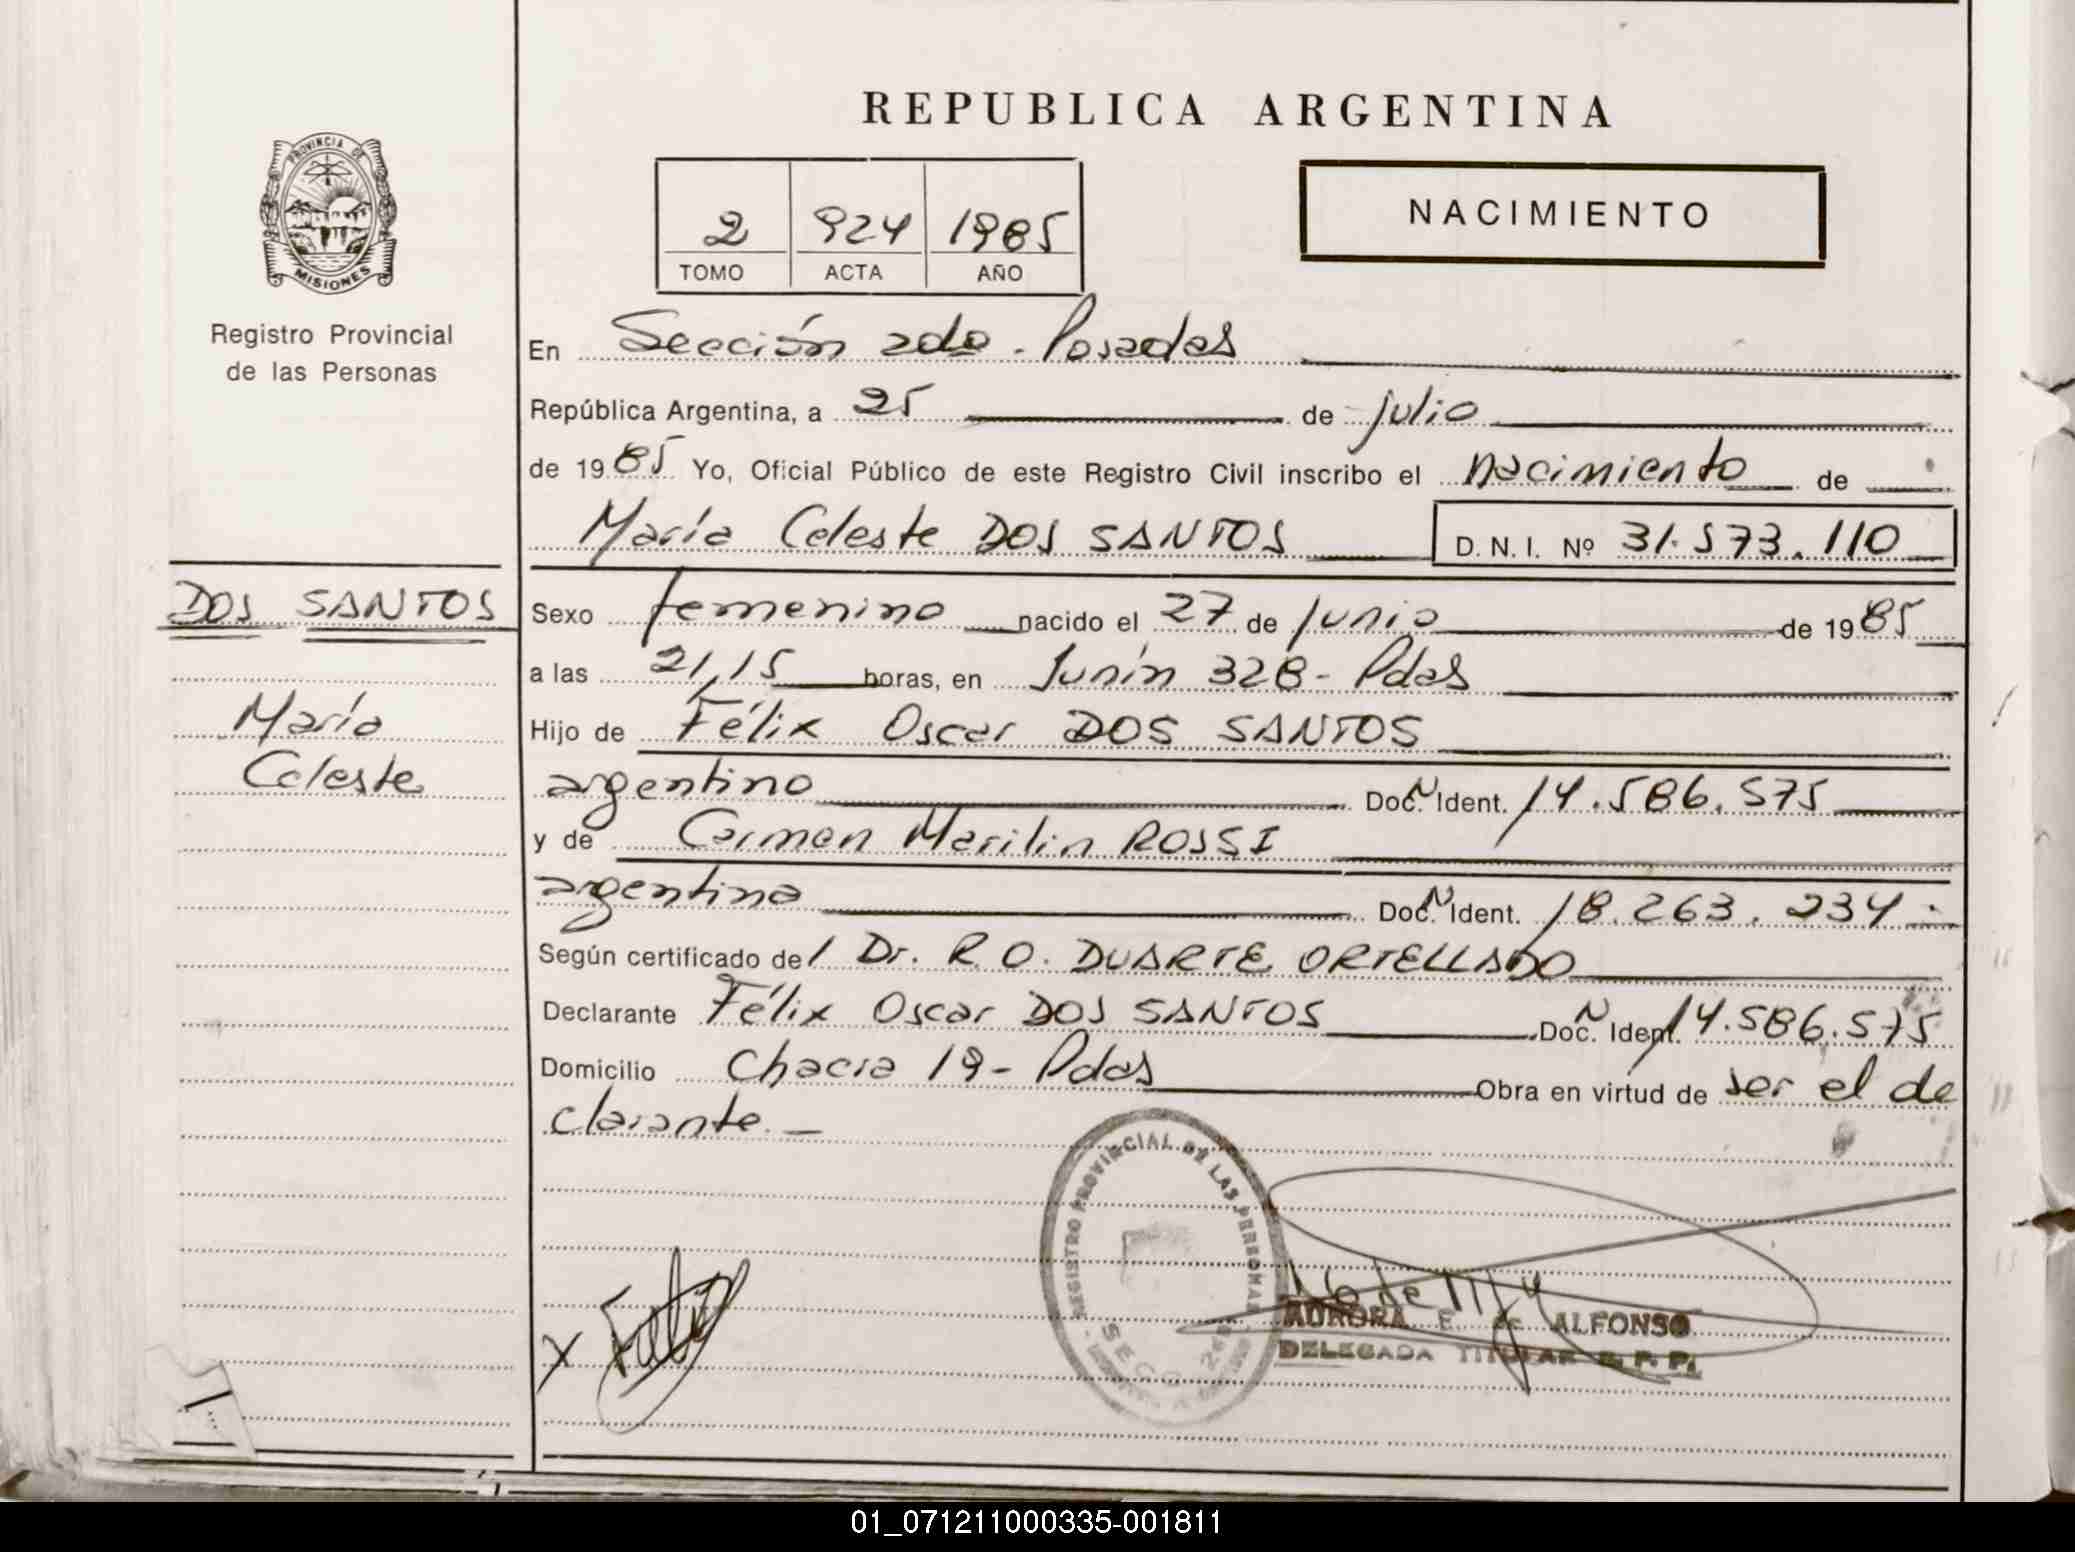 REPUBLICA ARGENTINA
PROVINCIA DE
MISIONES
Registro Provincial
de las Personas
2 924 1985
TOMO ACTA AÑO
NACIMIENTO
En Sección 2da - Posadas
República Argentina, a 25 de julio
de 1985 Yo, Oficial Público de este Registro Civil inscribo el nacimiento de
María Celeste DOS SANTOS D. N. I. Nº 31.573.110
DOS SANTOS
María
Celeste
Sexo femenino nacido el 27 de junio de 1985
a las 21,15 horas, en Junín 328 - Pdas
Hijo de Félix Oscar DOS SANTOS
argentino Doc. N Ident. 14.586.575
y de Carmen Marilin ROSSI
argentina Doc. N Ident. 18.263.234
Según certificado del Dr. R. O. DUARTE ORTELLADO
Declarante Félix Oscar DOS SANTOS Doc. N Ident. 14.586.575
Domicilio Chacra 19 - Pdas Obra en virtud de ser el de
clarante. —
REGISTRO PROVINCIAL DE LAS PERSONAS
SECC. 2da
X
AURORA E. de ALFONSO
DELEGADA TITULAR R. P. P.
01_071211000335-001811